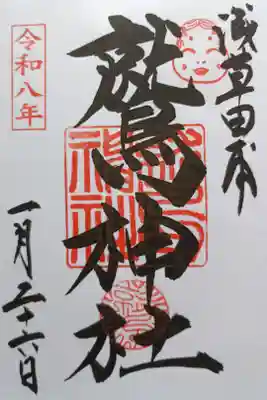 浅草田甫
鷲神社
令和八年
一月二十六日